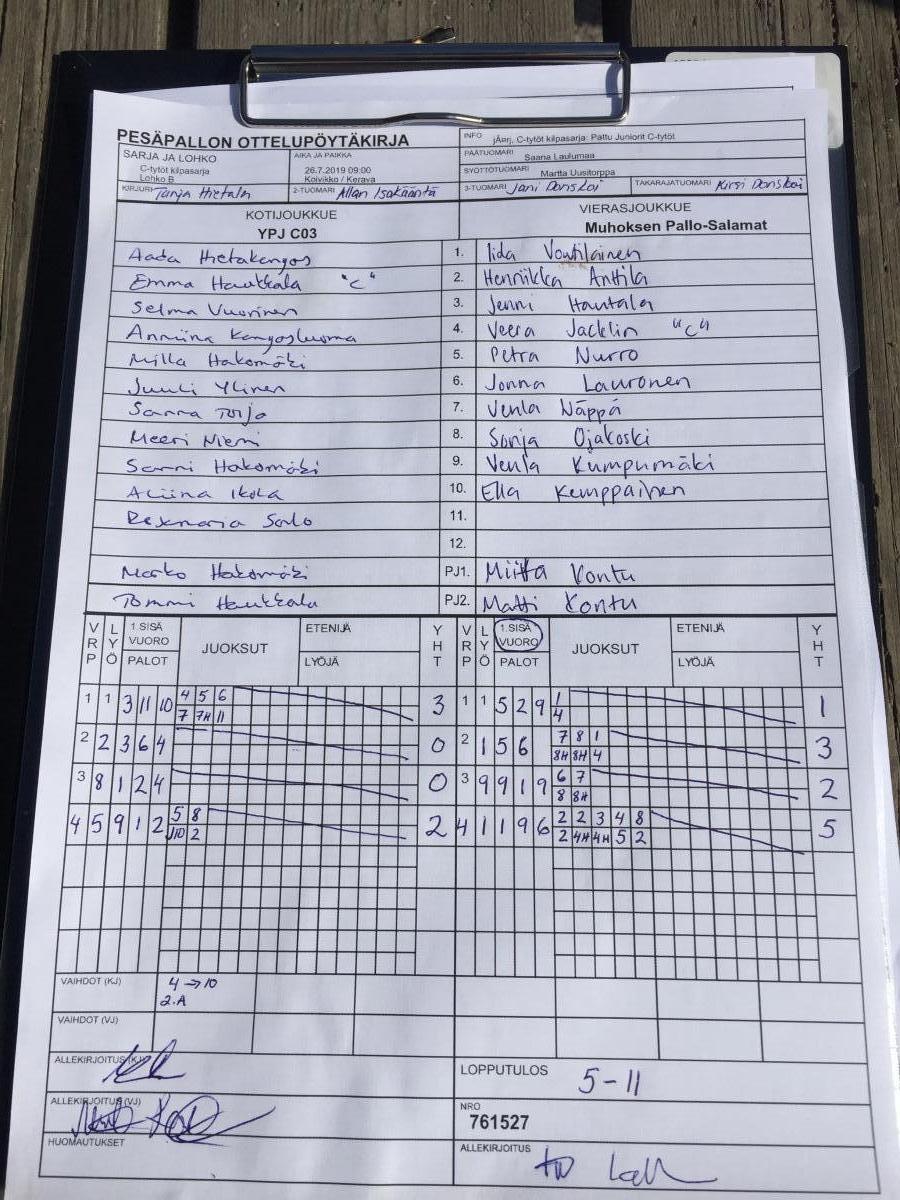 PESÄPALLON OTTELUPÖYTÄKIRJA
INFO jÄrrj, C-tytöt kilpasarja: Pattu Juniorit C-tytöt
SARJA JA LOHKO
C-tytöt kilpasarja
Lohko B
AIKA JA PAIKKA
26.7.2019 09:00
Koivikko / Kerava
PÄÄTUOMARI Saana Laulumaa
SYÖTTÖTUOMARI Martta Uusitorppa
KIRJURI Tanja Hietala
2-TUOMARI Allan Isokääntä
3-TUOMARI Jani Donskoi
TAKARAJATUOMARI Kirsi Donskoi
KOTIJOUKKUE
YPJ C03
VIERASJOUKKUE
Muhoksen Pallo-Salamat
Aada Hietakangas 1. Iida Voutilainen
Emma Haukkala "C" 2. Henriikka Anttila
Selma Vuorinen 3. Jenni Hautala
Anniina Kangasluoma 4. Veera Jacklin "C"
Milla Hakomäki 5. Petra Nurro
Juuli Ylinen 6. Jonna Lauronen
Sanna Torja 7. Venla Näppä
Meeri Niemi 8. Sonja Ojakoski
Sanni Hakomäki 9. Venla Kumpumäki
Aliina Ikola 10. Ella Kemppainen
Salo 11.
12.
Marko Hakomäki PJ1. Miitta Kontu
Tommi Haukkala PJ2. Matti Kontu
VRP LYÖ 1.SISÄ VUORO PALOT JUOKSUT ETENIJÄ LYÖJÄ YHT VRP LYÖ 1.SISÄ VUORO PALOT JUOKSUT ETENIJÄ LYÖJÄ YHT
1 1 3 11 10 4 5 6 3 1 1 5 2 9 1 1
7 7H 11 4
2 2 3 6 4 0 2 1 5 6 7 8 1 3
8H 8H 4
3 8 1 2 4 0 3 9 9 1 9 6 7 2
8 8H
4 5 9 1 2 5 8 2 4 1 1 9 6 2 2 3 4 8 5
10 2 2 4H 4H 5 2
VAIHDOT (KJ) 4 → 10
2.A
VAIHDOT (VJ)
ALLEKIRJOITUS (KJ)
LOPPUTULOS 5-11
ALLEKIRJOITUS (VJ)
NRO
761527
HUOMAUTUKSET
ALLEKIRJOITUS